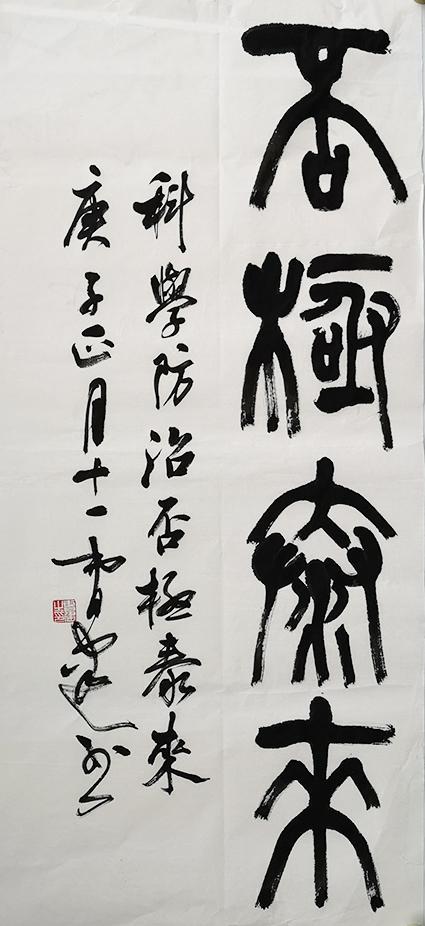 否極泰来
科學防治否極泰來
庚子正月十一